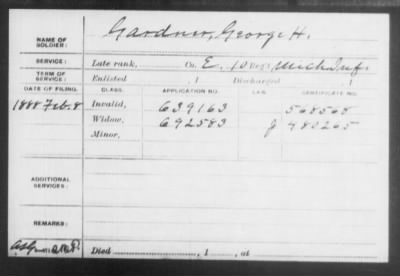 NAME OF SOLDIER: Gardner, George H.
SERVICE: Late rank, Co. E, 10 Reg't Mich Inf.
TERM OF SERVICE: Enlisted , 1 Discharged , 1
DATE OF FILING. CLASS. APPLICATION NO. LAW. CERTIFICATE NO.
1888 Feb. 8 Invalid, 639163 568568
Widow, 692583 J 480265
Minor,
ADDITIONAL SERVICES:
REMARKS:
Died , 1 , at